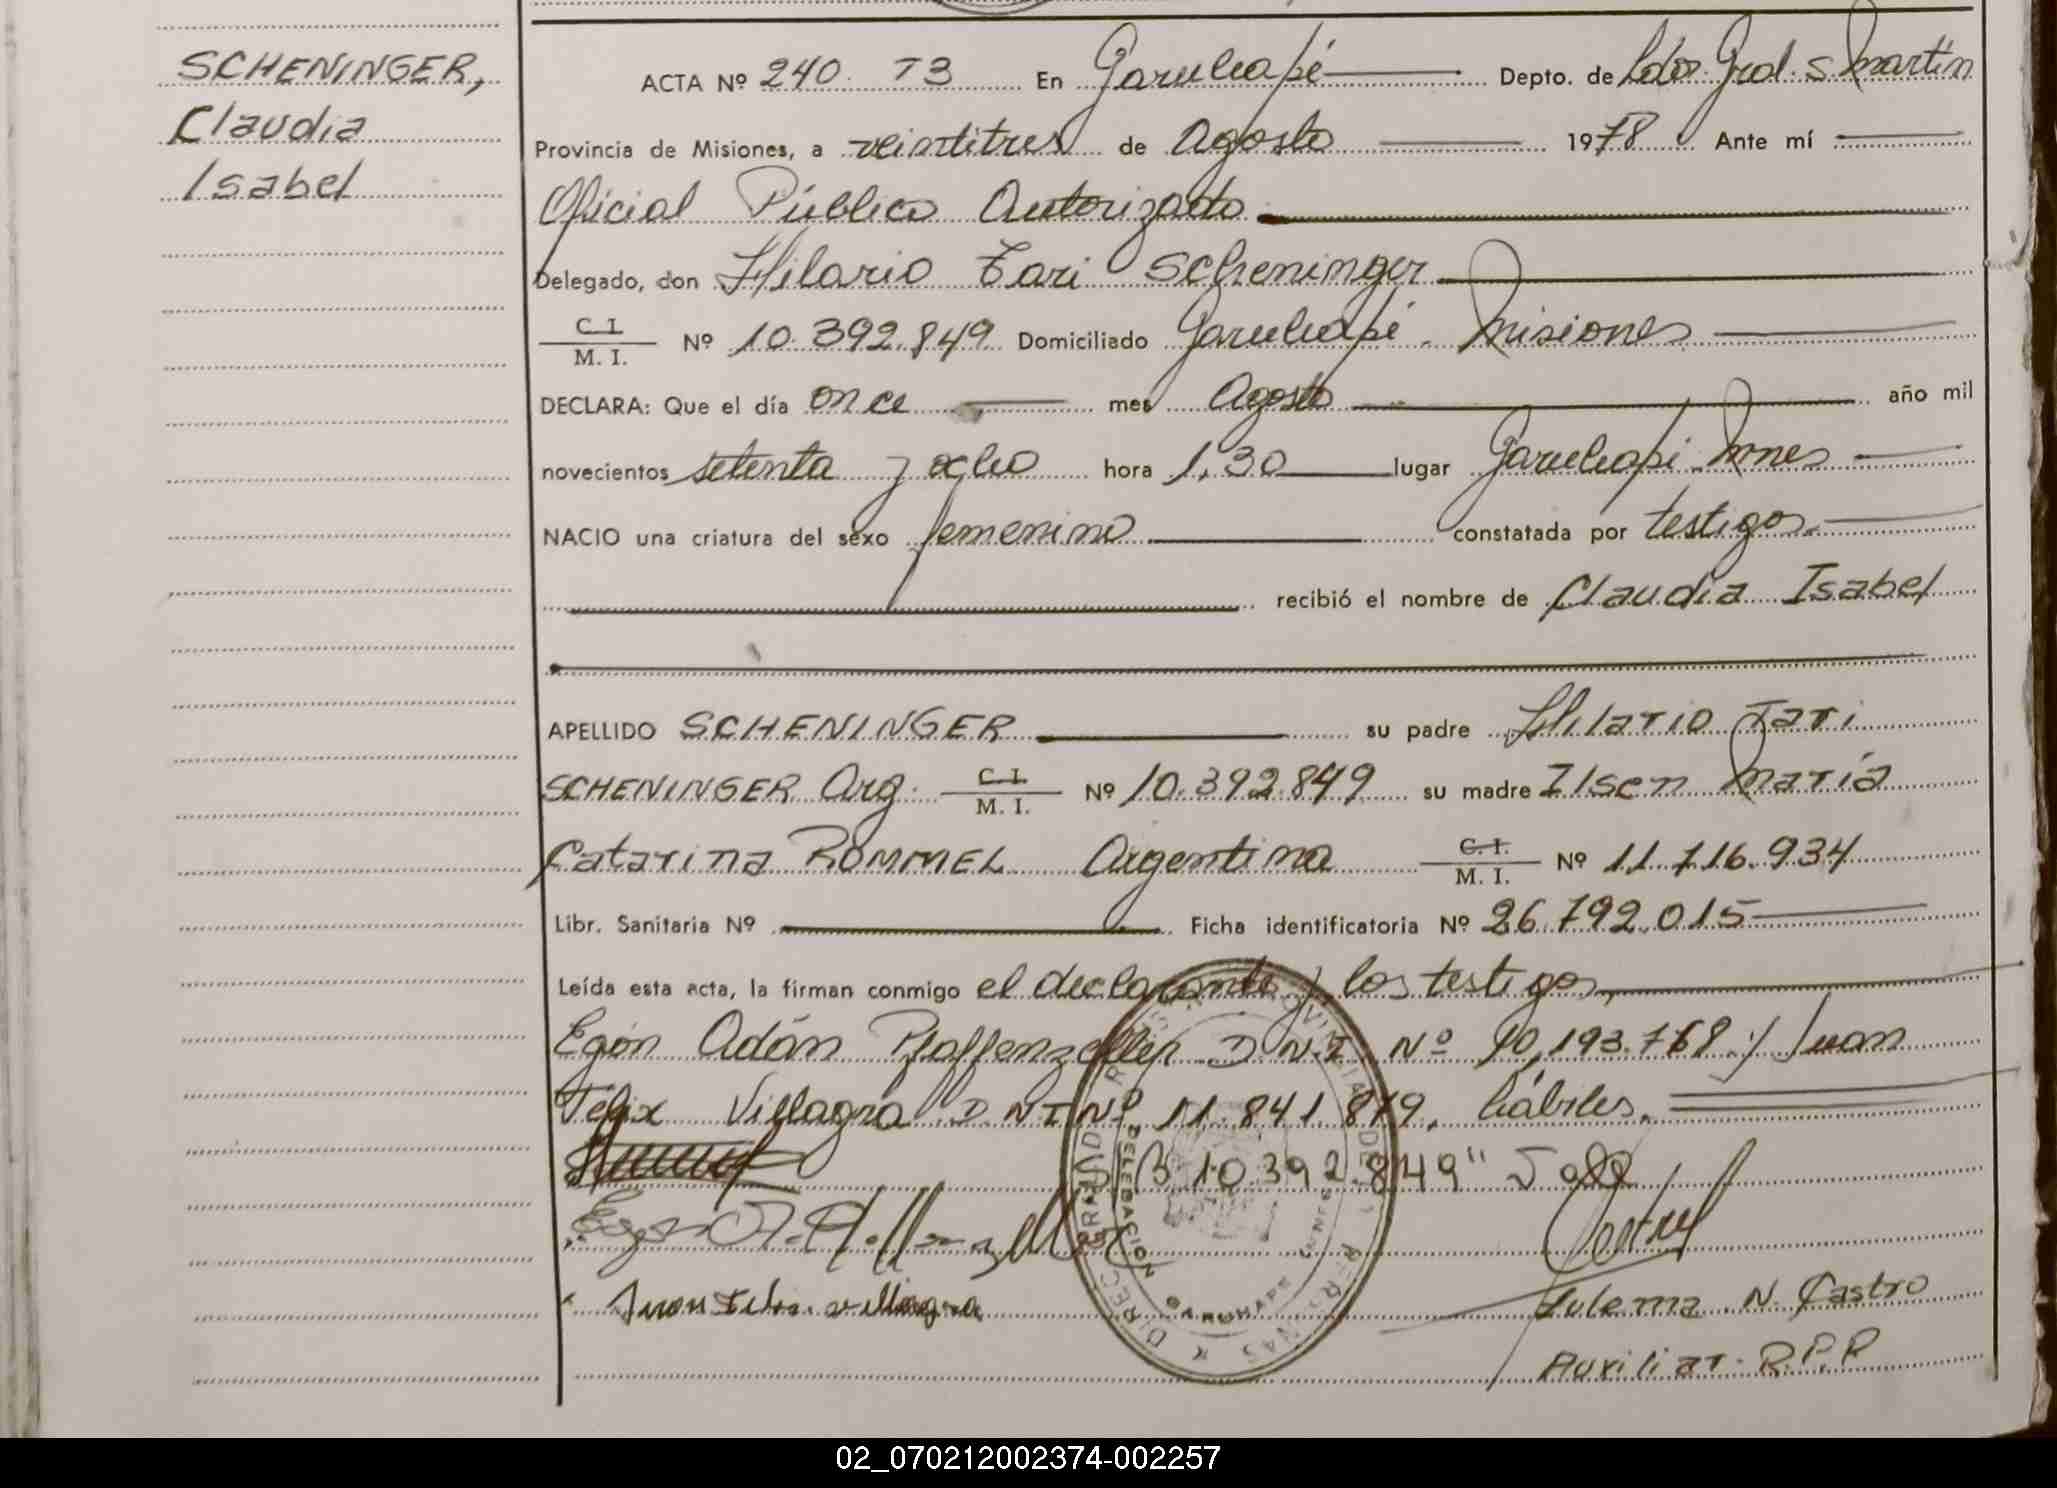 SCHENINGER,
Claudia
Isabel
ACTA Nº 240 T3 En Garuhapé Depto. de Ldor Gral S Martín
Provincia de Misiones, a veintitres de Agosto 1978 Ante mí
Oficial Público Autorizado
Delegado, don Hilario Tari Scheninger
C. I. M. I. Nº 10.392.849 Domiciliado Garuhapé - Misiones
DECLARA: Que el día once mes Agosto año mil
novecientos setenta y ocho hora 1,30 lugar Garuhapé Mnes
NACIO una criatura del sexo femenino constatada por testigos.
recibió el nombre de Claudia Isabel
APELLIDO SCHENINGER su padre Hilario Tari
SCHENINGER Arg. C. I. M. I. Nº 10.392.849 su madre Ilsen María
Catarina ROMMEL Argentina C. I. M. I. Nº 11.716.934
Libr. Sanitaria Nº Ficha identificatoria Nº 26.792.015
Leída esta acta, la firman conmigo el declarante y los testigos,
Egon Adán Pfaffenzeller D.N.I. Nº 10,193.768 y Juan
Felix Villagra D.N.I Nº 11.841.879. hábiles.
10.392.849"
Juan Felix villagra
Zulema N. Castro
Auxiliar R.P.P
DELEGACION GARUHAPE
02_070212002374-002257